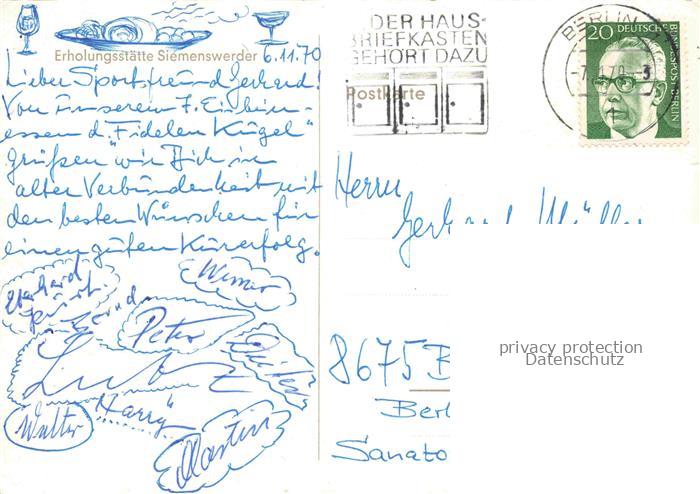 Erholungsstätte Siemenswerder 6.11.70
Lieber Sportsfreund Gerhard!
Von unserem 7. Eisbein-
essen d. "Fidelen Kugel"
grüßen wir Dich in
alter Verbundenheit mit
den besten Wünschen für
einen guten Kurerfolg.
Werner
Eberhard
Bernd
Peter
Dieter
Lutz
Harry
Walter
Martin
DER HAUS-
BRIEFKASTEN
GEHÖRT DAZU
Postkarte
BERLIN
20 DEUTSCHE
BUNDESPOST BERLIN
Herrn
8675 B
Berl
Sanato
privacy protection
Datenschutz